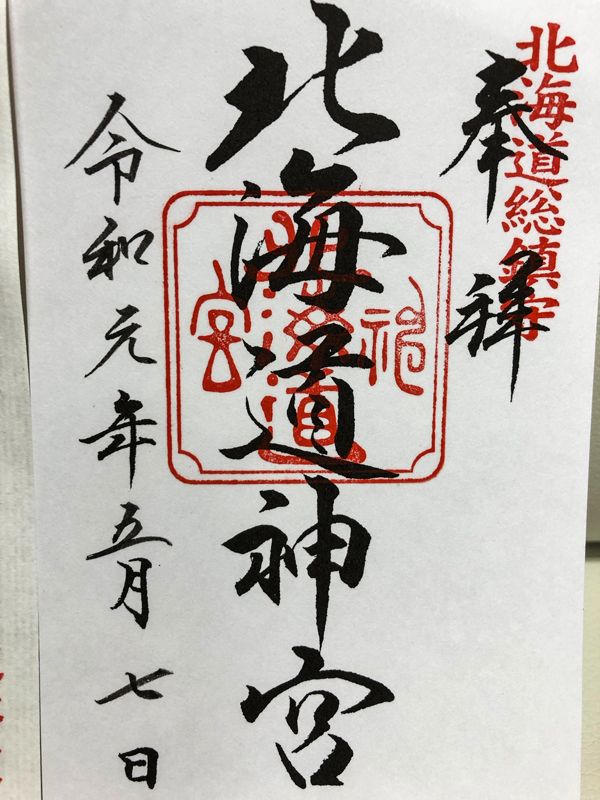 北海道総鎮守
奉拝
北海道神宮
令和元年五月七日